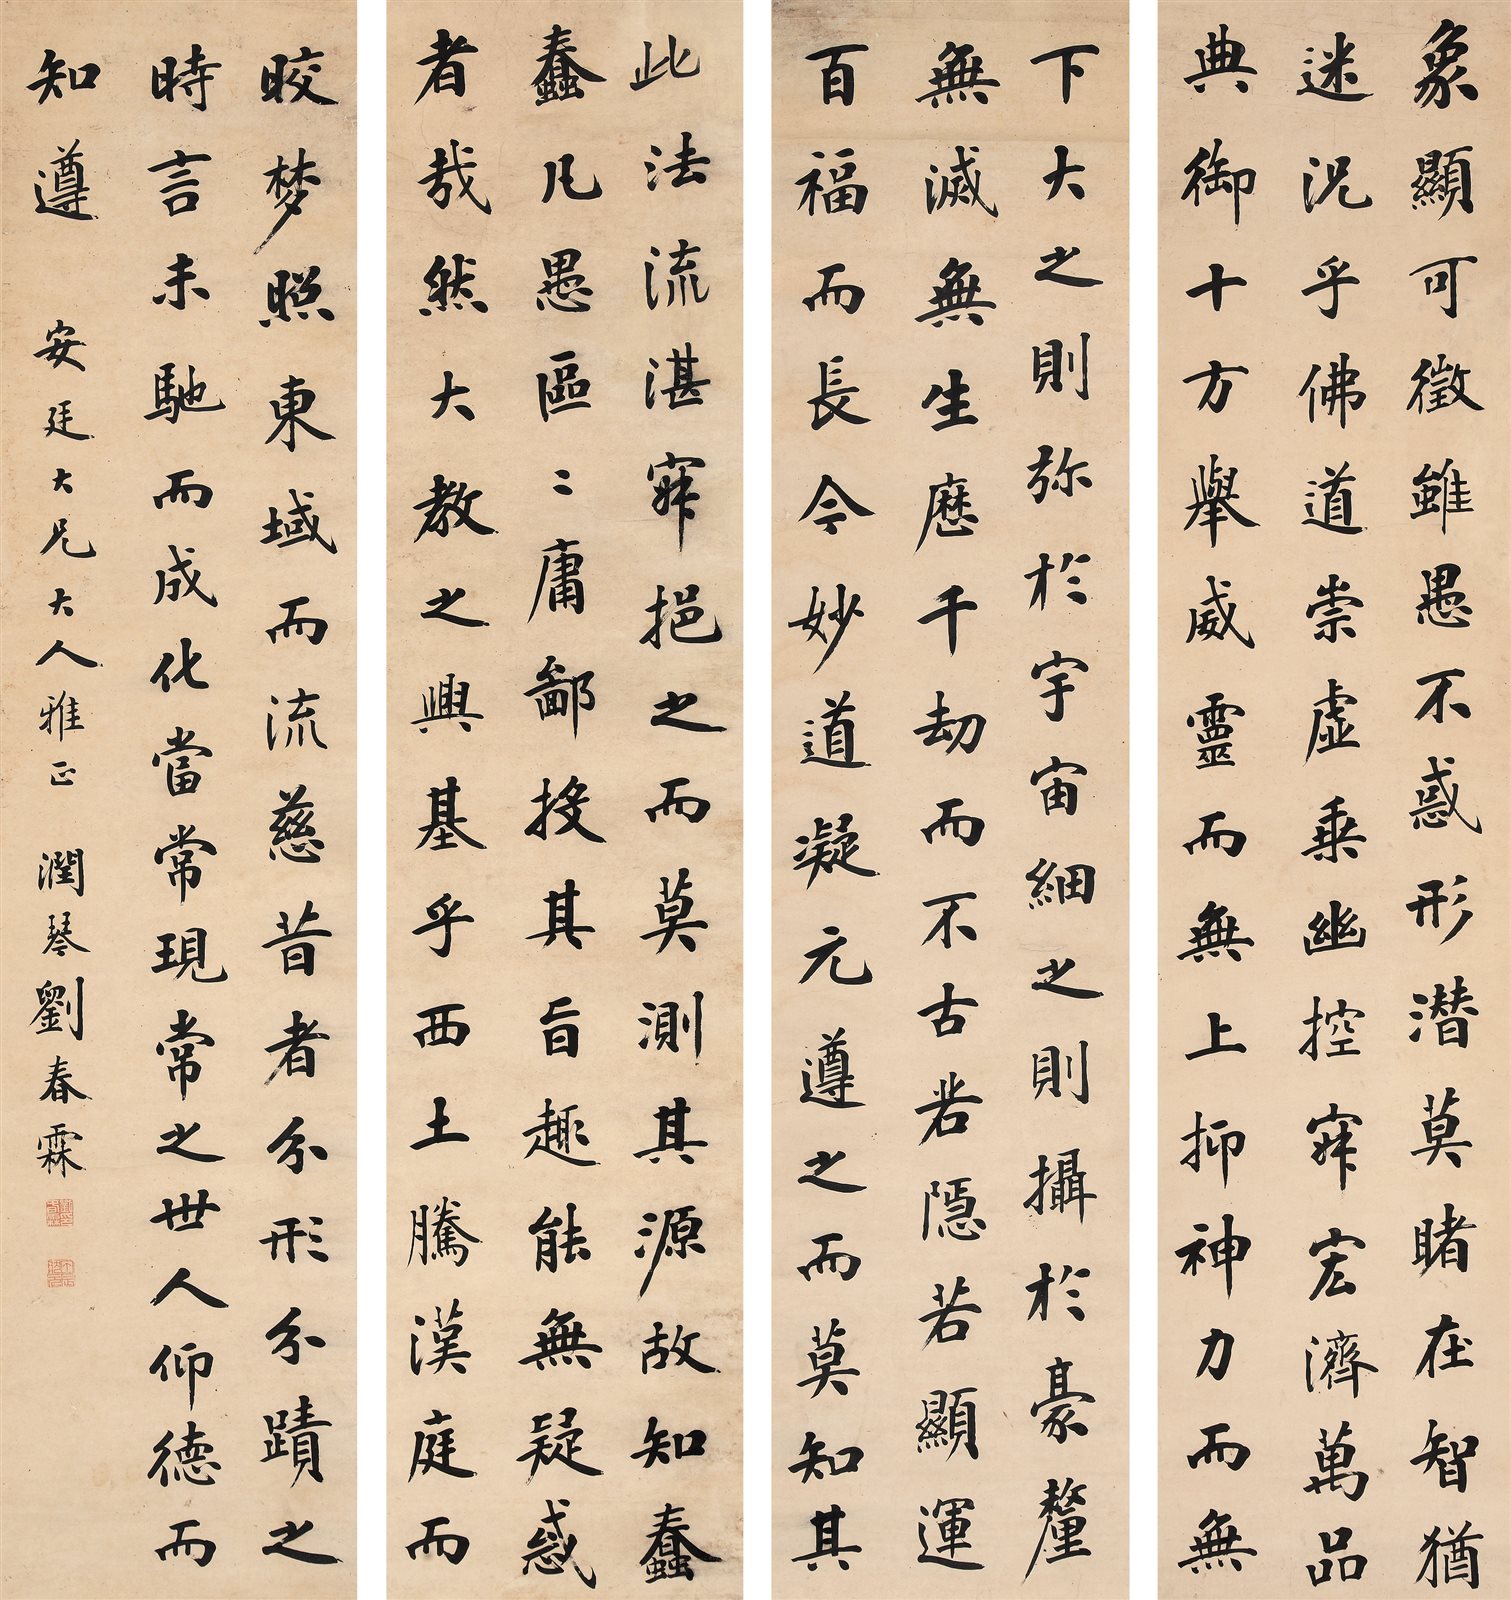 象顯可徵雖愚不惑形潜莫睹在智猶
迷況乎佛道崇虛乗幽控寂宏濟萬品
典御十方舉威靈而無上抑神力而無
下大之則弥於宇宙細之則攝於豪釐
無滅無生歷千劫而不古若隱若顯運
百福而長今妙道凝元遵之而莫知其
此法流湛寂挹之而莫測其源故知蠢
蠢凡愚區〻庸鄙投其旨趣能無疑惑
者哉然大教之興基乎西土騰漢庭而
皎梦照東域而流慈昔者分形分蹟之
時言未馳而成化當常現常之世人仰德而
知遵 安廷大兄大人雅正 潤琴劉春霖